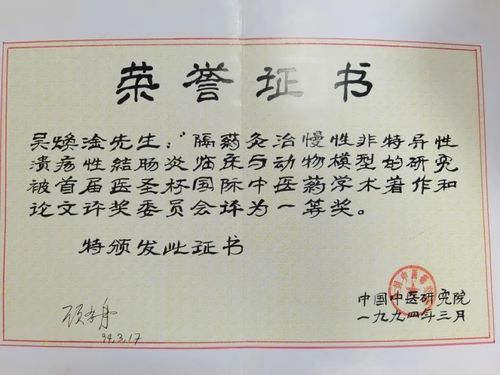 荣誉证书
吴焕淦先生:"隔药灸治慢性非特异性
溃疡性结肠炎临床与动物模型的研究
被首届医圣杯国际中医药学术著作和
论文评奖委员会评为一等奖。
特颁发此证书
中国中医研究院
一九九四年三月
94.3.17